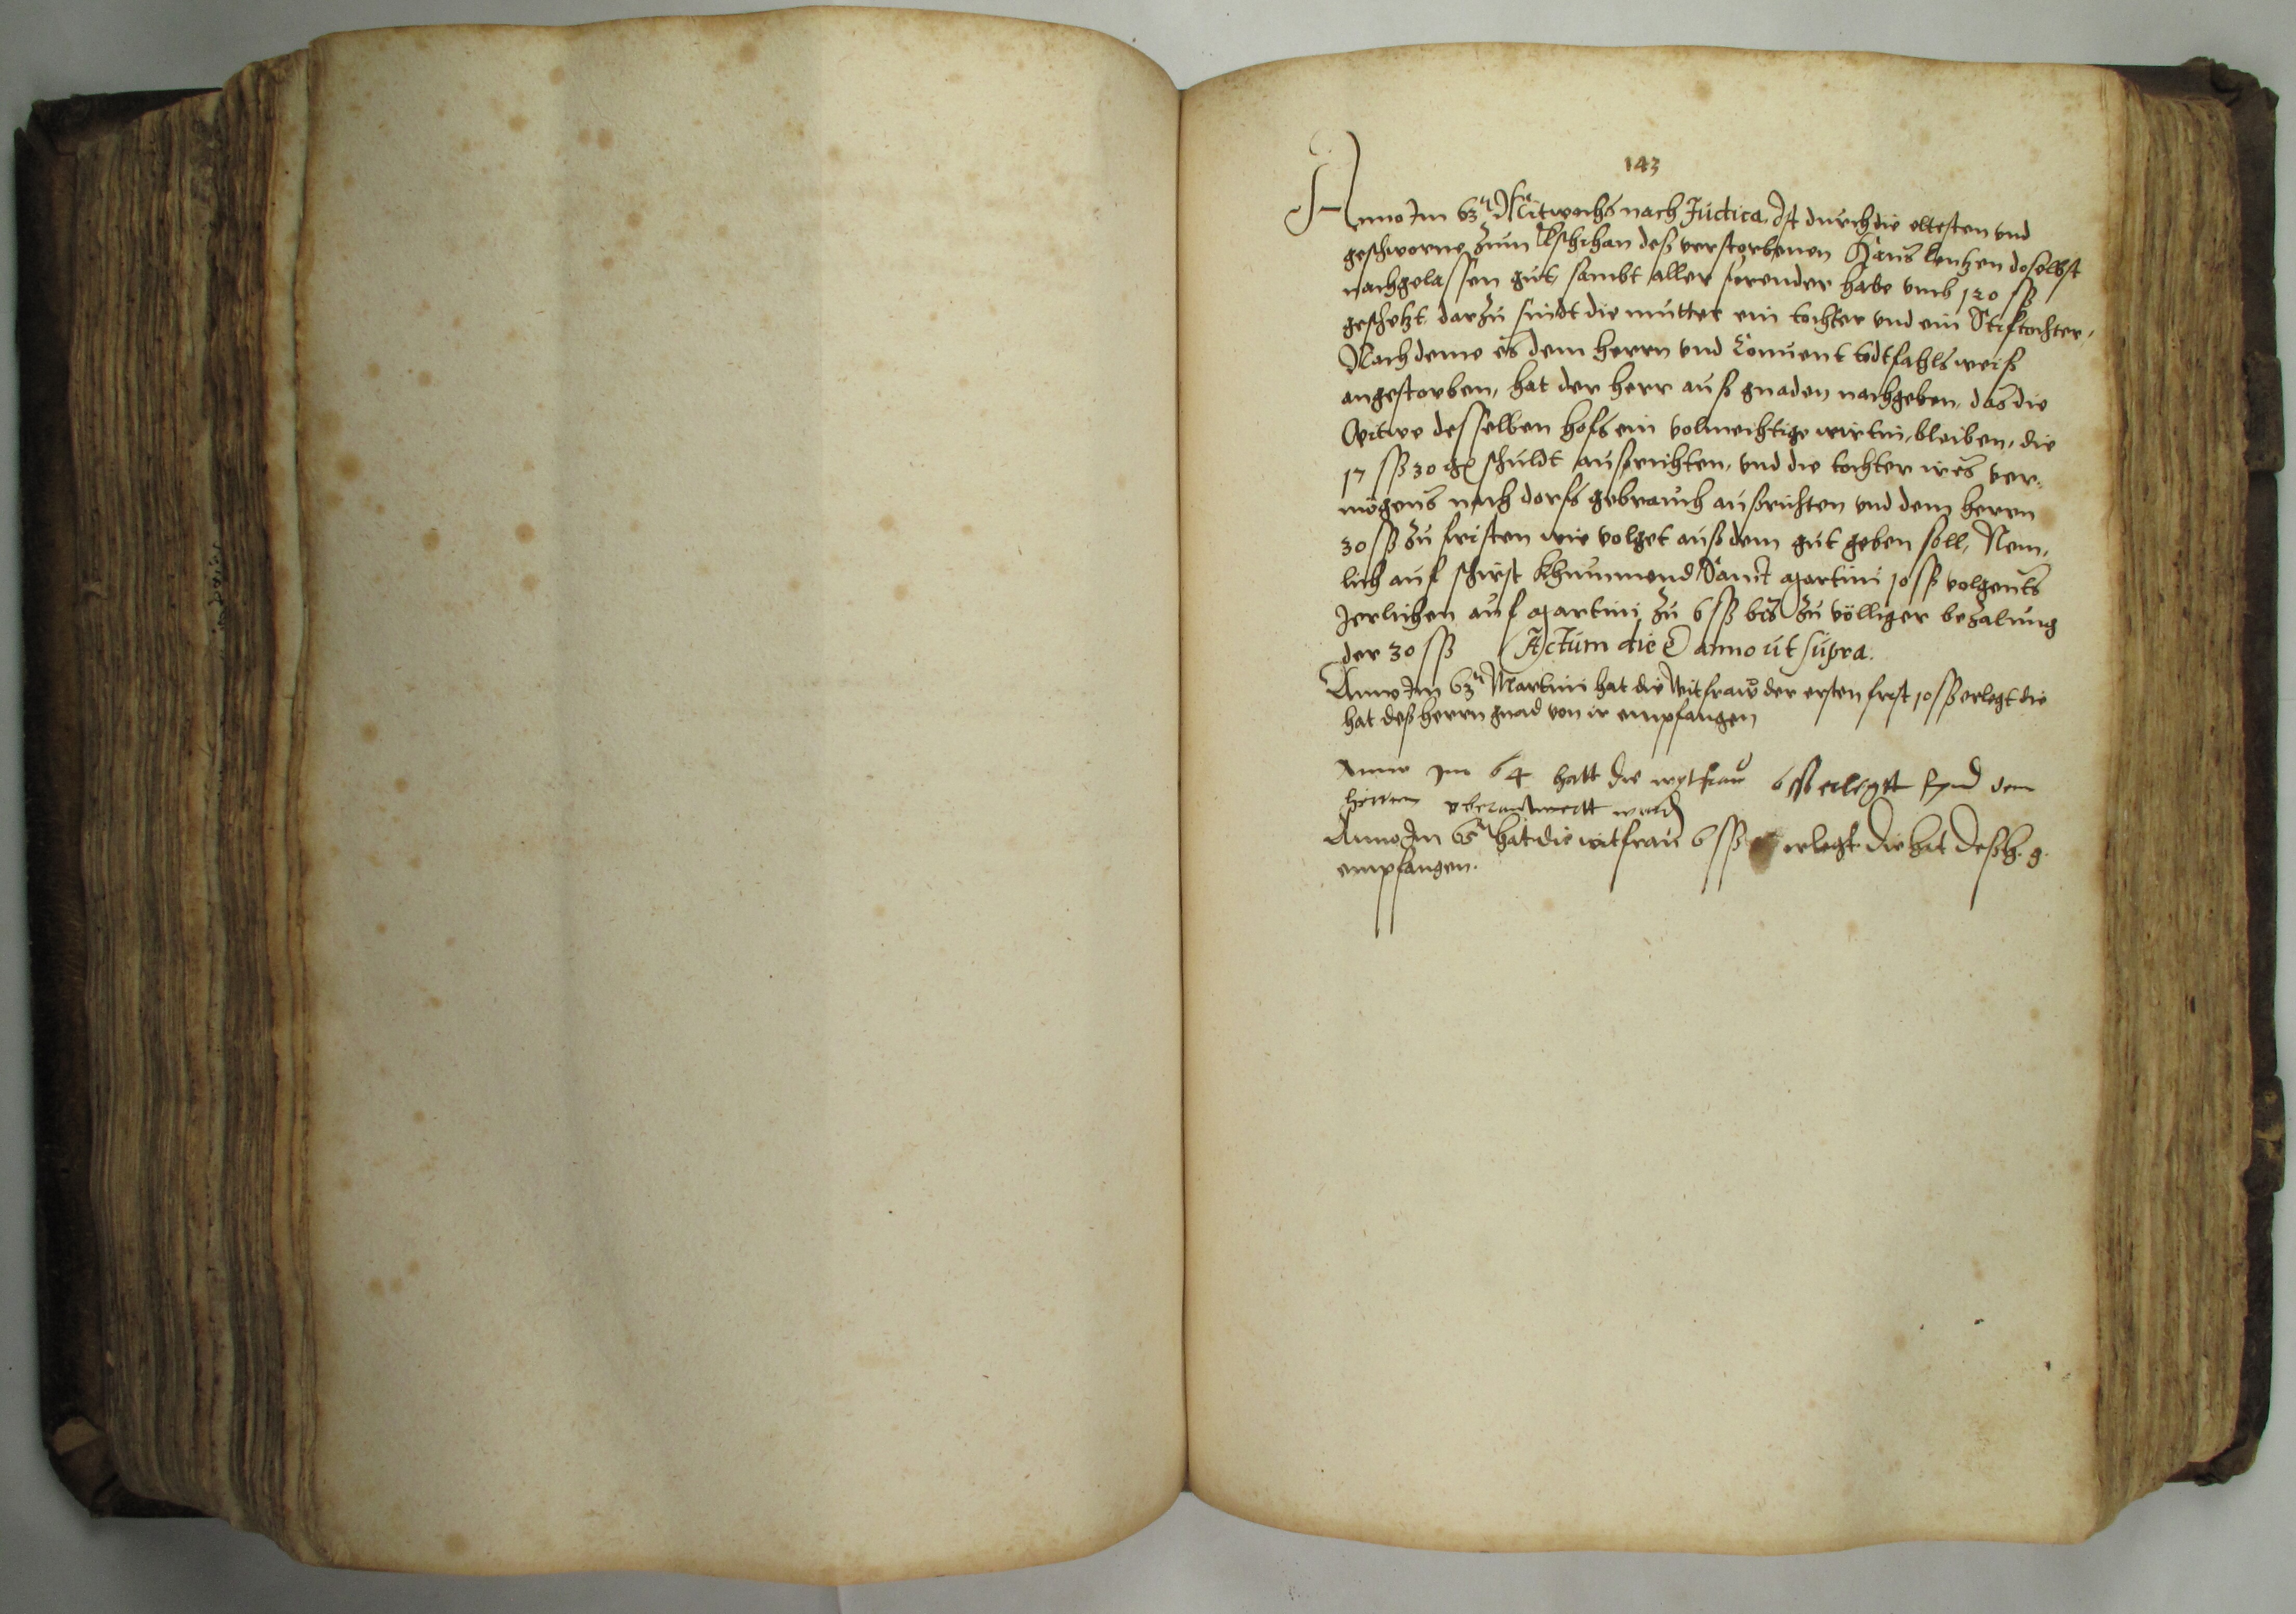 143
Anno Im 63ᵗ Mitwochs nach Judica Ist durch die eltesten vnd
geschworne zum Tschihan deß verstorbenen Hans lentzen doselbst
nachgelassen gut, sambt aller farender habe vmb 120 ſß
geschetzt. darzu sindt die mutter ein tochter vnd ein Stieftochter,
Nachdeme es dem herrn vnd Conuent todtfahlsweiß
angestorben, hat der herr auß gnaden nachgeben, das die
Witwe desselben hofs ein volmechtige wirtin, bleiben, die
17 ſß 30 gr schuldt außrichten, vnd die tochter ires ver-
mögens nach dorfs gebrauch außrichten vnd dem herrn
30 ſß zu fristen wie volget auß dem gut geben soll, Nem-
lich auf schirst khummend Sanct Martini 10 ſß volgents
Jerlichen auf Martini zu 6 ſß bis zu völliger bezalung
der 30 ſß Actum die et anno ut supra.
Anno Im 63ᵗ Martini hat die Witfraw der ersten frist 10 ſß erlegt die
hat deß herrn gnad von ir empfangen
Anno Im 64 hatt die wytfraw 6 ſß erlegtt synd dem
herren vberantwertt word
Anno Im 65ᵗ hat die witfrau 6 ſß erlegt die hat deß h. g.
empfangen.